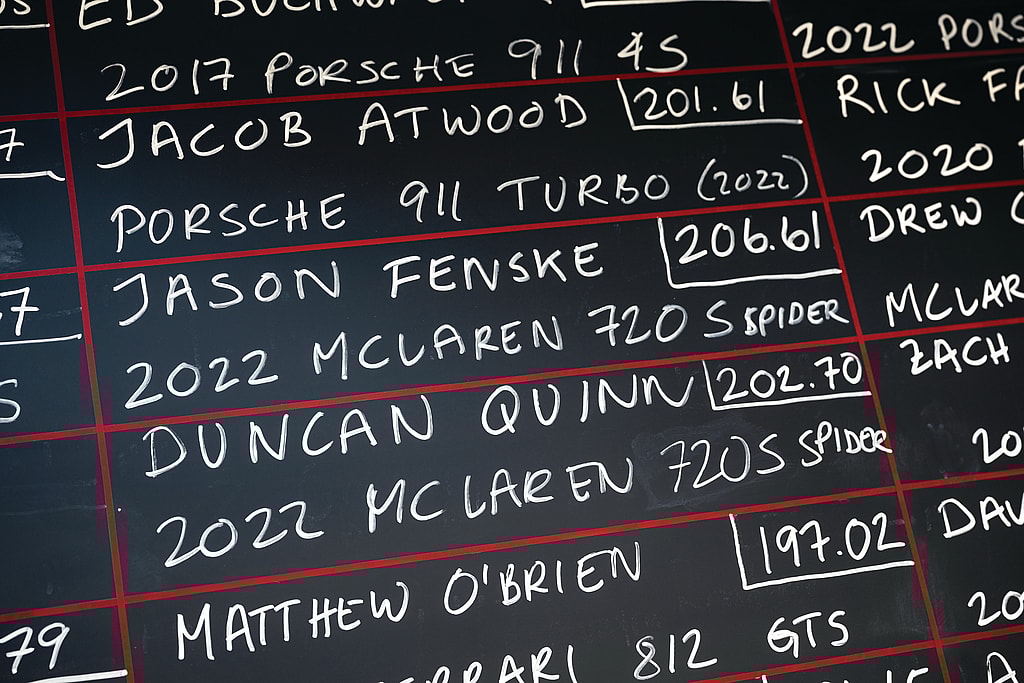 ED
2017 PORSCHE 911 4S
JACOB ATWOOD 201.61
PORSCHE 911 TURBO (2022)
JASON FENSKE 206.61
2022 MCLAREN 720 S SPIDER
DUNCAN QUINN 202.70
2022 MCLAREN 720S SPIDER
MATTHEW O'BRIEN 197.02
812 GTS
2022
RICK
2020
DREW
ZACH
7
7
S
79